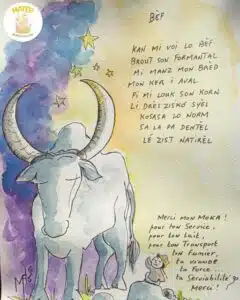 MATER
BÈF
KAN MI VOI LO BÈF
BROUT SON FORMANTAL
MI MANZ MON BRED
MON KER I AVAL
PI MI LOUK SON KORN
LI DRÈS ZISKO SYÈL
KOSASA LO NORM
SA LA PA DENTEL
LÉ ZIST NATIRÈL
Merci mon MOKA !
pour ton Service,
pour ton Lait,
pour ton Transport
ton Fumier,
ta VIANDE
ta Force...
ta Serviabilité
Merci !